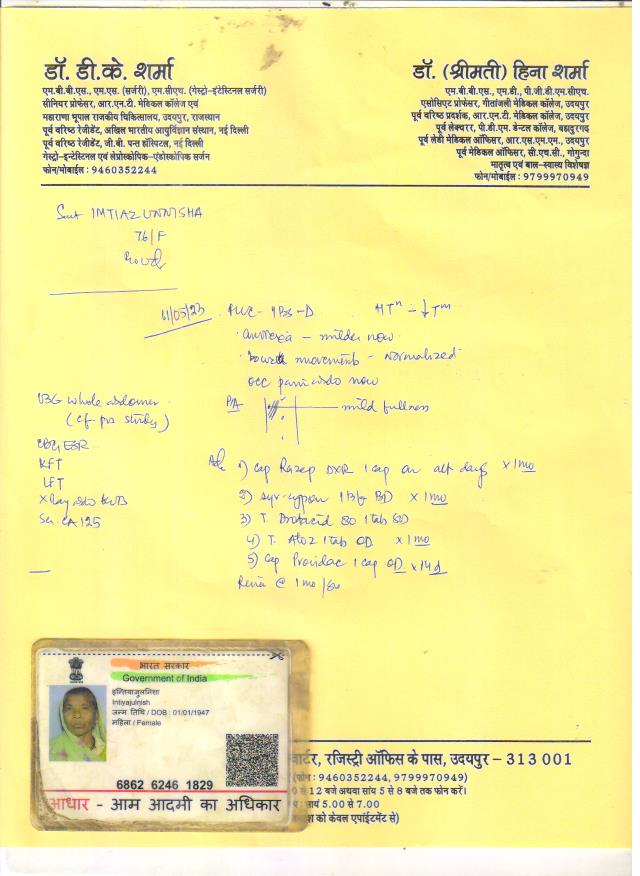 डॉ. डी.के. शर्मा
एम.बी.बी.एस., एम.एस. (सर्जरी), एम.सीएच. (गेस्ट्रो-इंटेस्टिनल सर्जरी)
सीनियर प्रोफेसर, आर.एन.टी. मेडिकल कॉलेज एवं
महाराणा भूपाल राजकीय चिकित्सालय, उदयपुर, राजस्थान
पूर्व वरिष्ठ रेजीडेंट, अखिल भारतीय आयुर्विज्ञान संस्थान, नई दिल्ली
पूर्व वरिष्ठ रेजीडेंट, जी.बी. पन्त हॉस्पिटल, नई दिल्ली
गेस्ट्रो-इन्टेस्टिनल एवं लेप्रोस्कोपिक-एंडोस्कोपिक सर्जन
फोन/मोबाईल : 9460352244
डॉ. (श्रीमती) हिना शर्मा
एम.बी.बी.एस., एम.डी., पी.जी.डी.एम.सीएच.
एसोसिएट प्रोफेसर, गीतांजली मेडिकल कॉलेज, उदयपुर
पूर्व वरिष्ठ प्रदर्शक, आर.एन.टी. मेडिकल कॉलेज, उदयपुर
पूर्व लेक्चरर, पी.डी.एम. डेन्टल कॉलेज, बहादुरगढ़
पूर्व लेडी मेडिकल ऑफिसर, आर.एस.एम.एम., उदयपुर
पूर्व मेडिकल ऑफिसर, सी.एच.सी., गोगुन्दा
मातृत्व एवं बाल-स्वास्थ्य विशेषज्ञ
फोन/मोबाईल : 9799970949
Smt IMTIAZUNNISHA
76/F
11/05/23 IBS-D HTn
anorexia - milder now
bowel movements - normalized
occ pain abdo now
P/A mild fullness
USG whole abdomen
(cf prv study)
CBC, ESR
KFT
LFT
X Ray abdo KUB
Ser. CA 125
Adv 1) Cap Razep DXR 1 cap on alt days x 1 mo
2) Syr cypon BD x 1 mo
3) T. 80 1 tab
4) T. AtoZ 1 tab OD x 1 mo
5) Cap Providac 1 cap OD x 14 d
Review @ 1 mo
भारत सरकार
Government of India
इम्तियाजुलनिशा
Intiyajulnish
जन्म तिथि / DOB : 01/01/1947
महिला / Female
6862 6246 1829
आधार - आम आदमी का अधिकार
वार्टर, रजिस्ट्री ऑफिस के पास, उदयपुर - 313 001
(फोन : 9460352244, 9799970949)
से 12 बजे अथवा सांय 5 से 8 बजे तक फोन करें।
: सायं 5.00 से 7.00
को केवल एपॉईंटमेंट से)